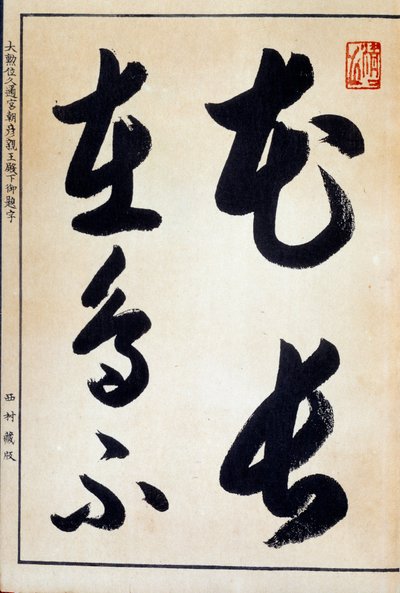 花長
在鳥不
大勳位久邇宮朝彦親王殿下御題字
西村藏版